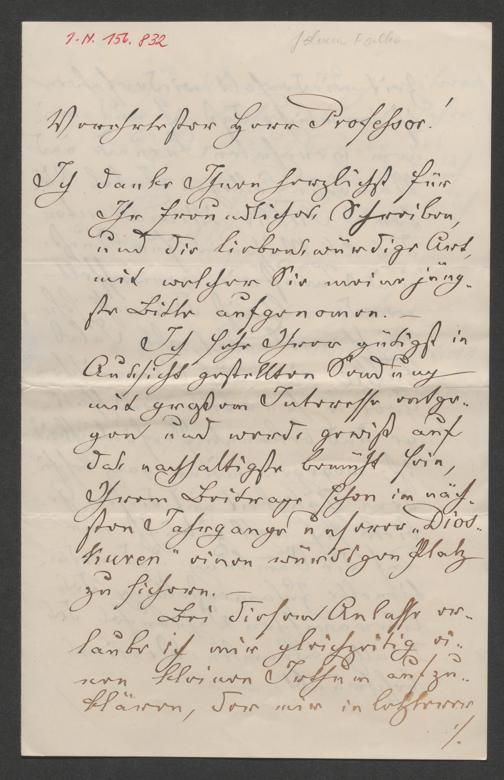 I.N. 156.832
Verehrtester Herr Professor!
Ich danke Ihnen herzlichst für
Ihr freundliches Schreiben,
und die liebenswürdige Art,
mit welcher Sie meine jüng-
ste Bitte aufgenomen. —
Ich sehe Ihrer gütigst in
Aussicht gestellten Sendung
mit großem Interesse entge-
gen und werde gewiß auf
das nachhaltigste bemüht sein,
Ihrem Beitrage schon im näch-
sten Jahrgange unserer „Dios-
kuren" einen würdigen Platz
zu sichern. —
Bei diesem Anlasse er-
laube ich mir gleichzeitig ei-
nen kleinen Irrthum aufzu-
klären, der mir in letzterer
./.